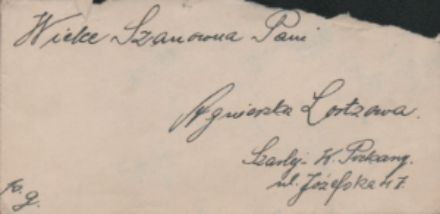 Wielce Szanowna Pani
Agnieszka Lortzowa.
Szarlej. K.
ul. Józefska 47.
g.